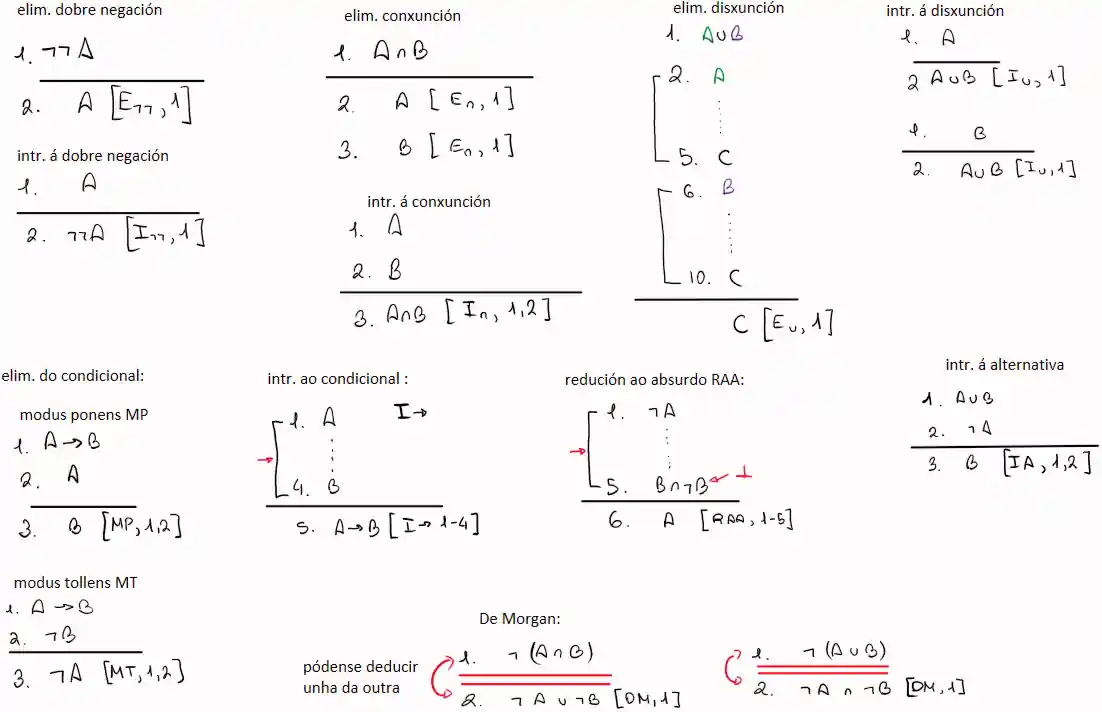 elim. dobre negación
1. ¬¬A
2. A [E¬¬, 1]
intr. á dobre negación
1. A
2. ¬¬A [I¬¬, 1]
elim. conxunción
1. A∩B
2. A [E∩, 1]
3. B [E∩, 1]
intr. á conxunción
1. A
2. B
3. A∩B [I∩, 1,2]
elim. disxunción
1. A∪B
2. A
5. C
6. B
10. C
C [E∪, 1]
intr. á disxunción
1. A
2 A∪B [I∪, 1]
1. B
2. A∪B [I∪, 1]
elim. do condicional:
modus ponens MP
1. A→B
2. A
3. B [MP, 1,2]
modus tollens MT
1. A→B
2. ¬B
3. ¬A [MT, 1,2]
intr. ao condicional :
I→
1. A
4. B
5. A→B [I→ 1-4]
redución ao absurdo RAA:
1. ¬A
5. B∩¬B ← ⊥
6. A [RAA, 1-5]
intr. á alternativa
1. A∪B
2. ¬A
3. B [IA, 1,2]
De Morgan:
pódense deducir
unha da outra
1. ¬(A∩B)
2. ¬A ∪ ¬B [DM, 1]
1. ¬(A∪B)
2. ¬A ∩ ¬B [DM, 1]